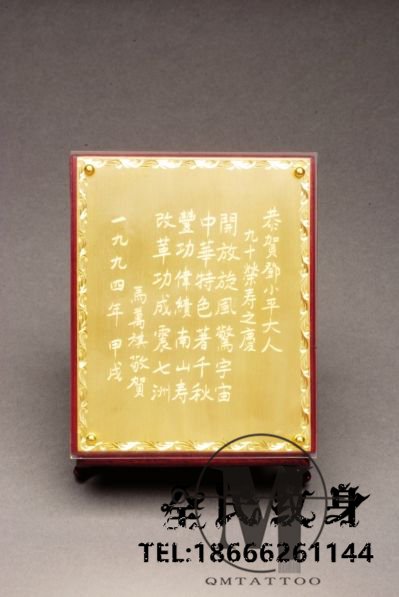 恭賀鄧小平大人
九十榮寿之慶
開放旋風驚宇宙
中華特色著千秋
豐功偉績南山寿
改革功成震七洲
馬萬祺敬賀
一九九四年甲戌
全民纹身
TEL:18666261144
QMTATTOO